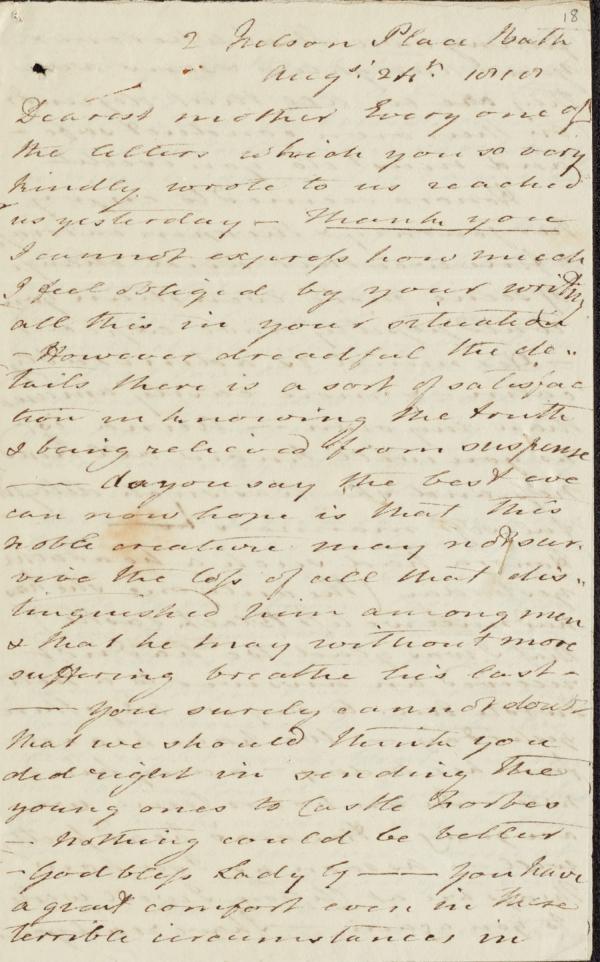 18
2 Nelson Place Bath
Augst. 24th. 1818
Dearest mother Every one of
the letters which you so very
kindly wrote to us reached
us yesterday - Thank you
I cannot express how much
I feel obliged by your writing
all this in your situation
- However dreadful the de„
tails there is a sort of satisfac
tion in knowing the truth
& being relieved from suspense
— As you say the best we
can now hope is that this
noble creature may not sur„
vive the loss of all that dis„
tinguished him among men
& that he may without more
suffering breathe his last -
— You surely cannot doubt
that we should think you
did right in sending the
young ones to Castle Forbes
- nothing could be better
- God bless Lady G —— you have
a great comfort even in these
terrible circumstances in